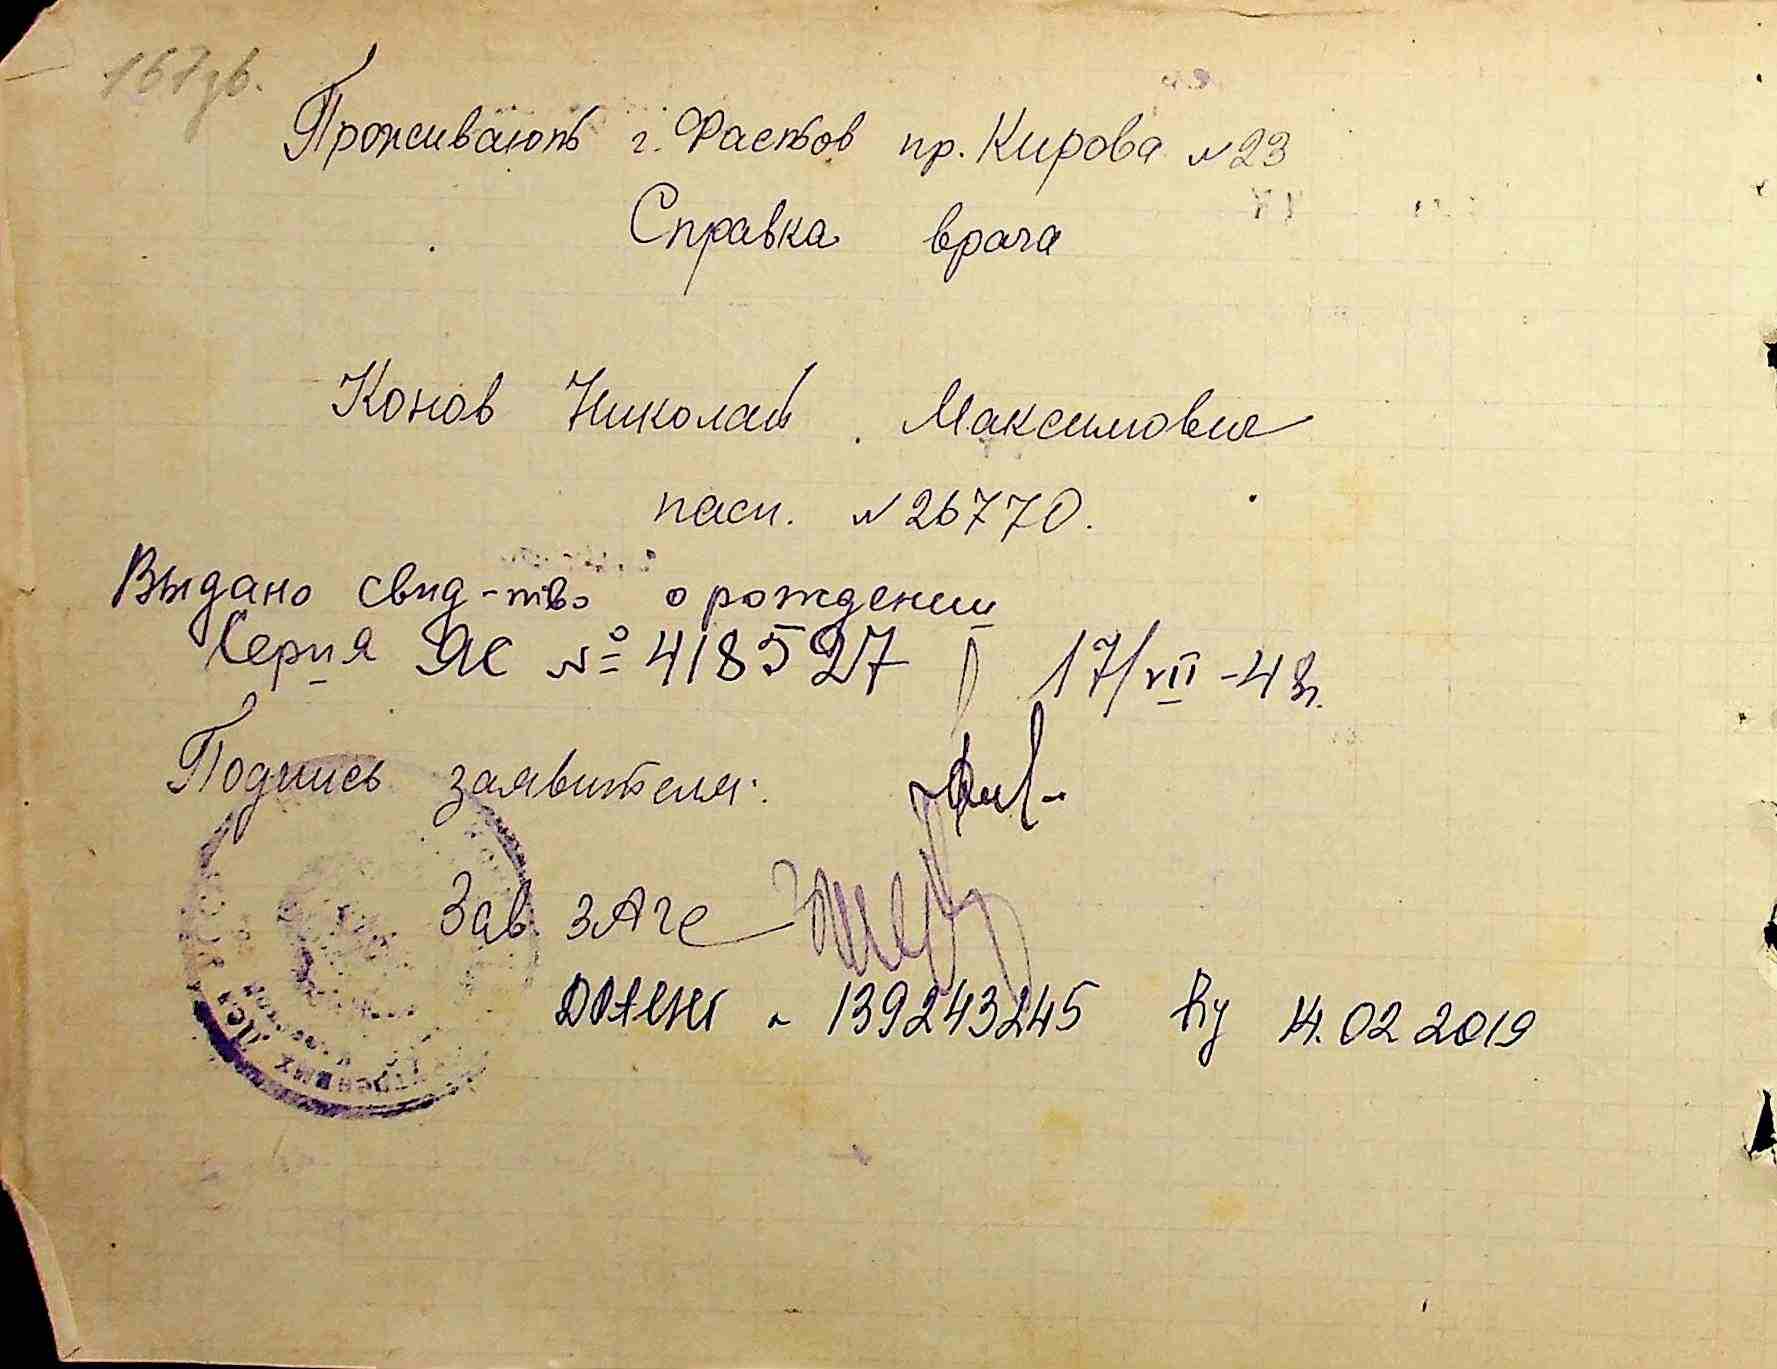 167зв.
Проживают г. Фастов пр. Кирова №23
Справка врача
Конов Николай Максимович
пасп. №26770.
Выдано свид-тво о рождении
Серия ЯС № 418527 17/VII-43г.
Подпись заявителя:
Зав ЗАГС
139243245 14.02 2019